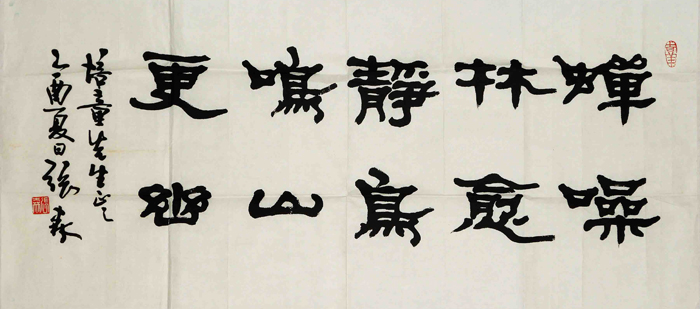 蝉噪
林愈
靜鳥
鳴山
更幽
培童先生正之
乙酉夏日張森